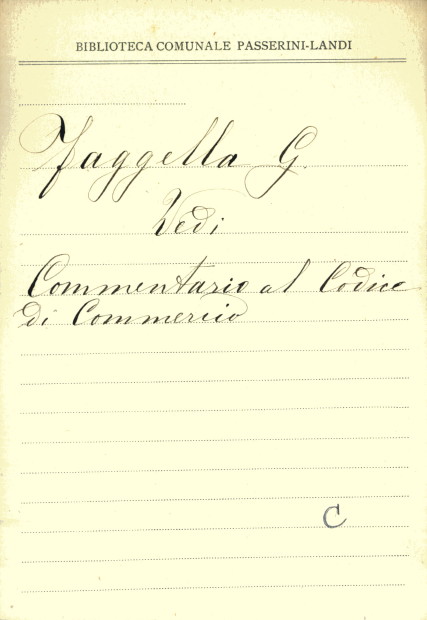 BIBLIOTECA COMUNALE PASSERINI-LANDI
Faggella G.
Vedi
Commentario al Codice
di Commercio
C